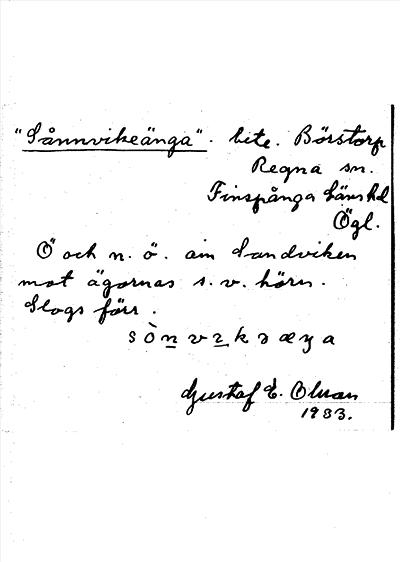 "Sånnvikeänga". bite. Börstorp
Regna sn.
Finspånga läns hd
Ögl.
Ö och n. ö. om Sandviken
mot ägornas s. v. hörn.
Slogs förr.
Gustaf E. Olsson
1933.